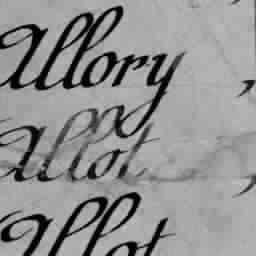 Allory,
Allot,
Allot